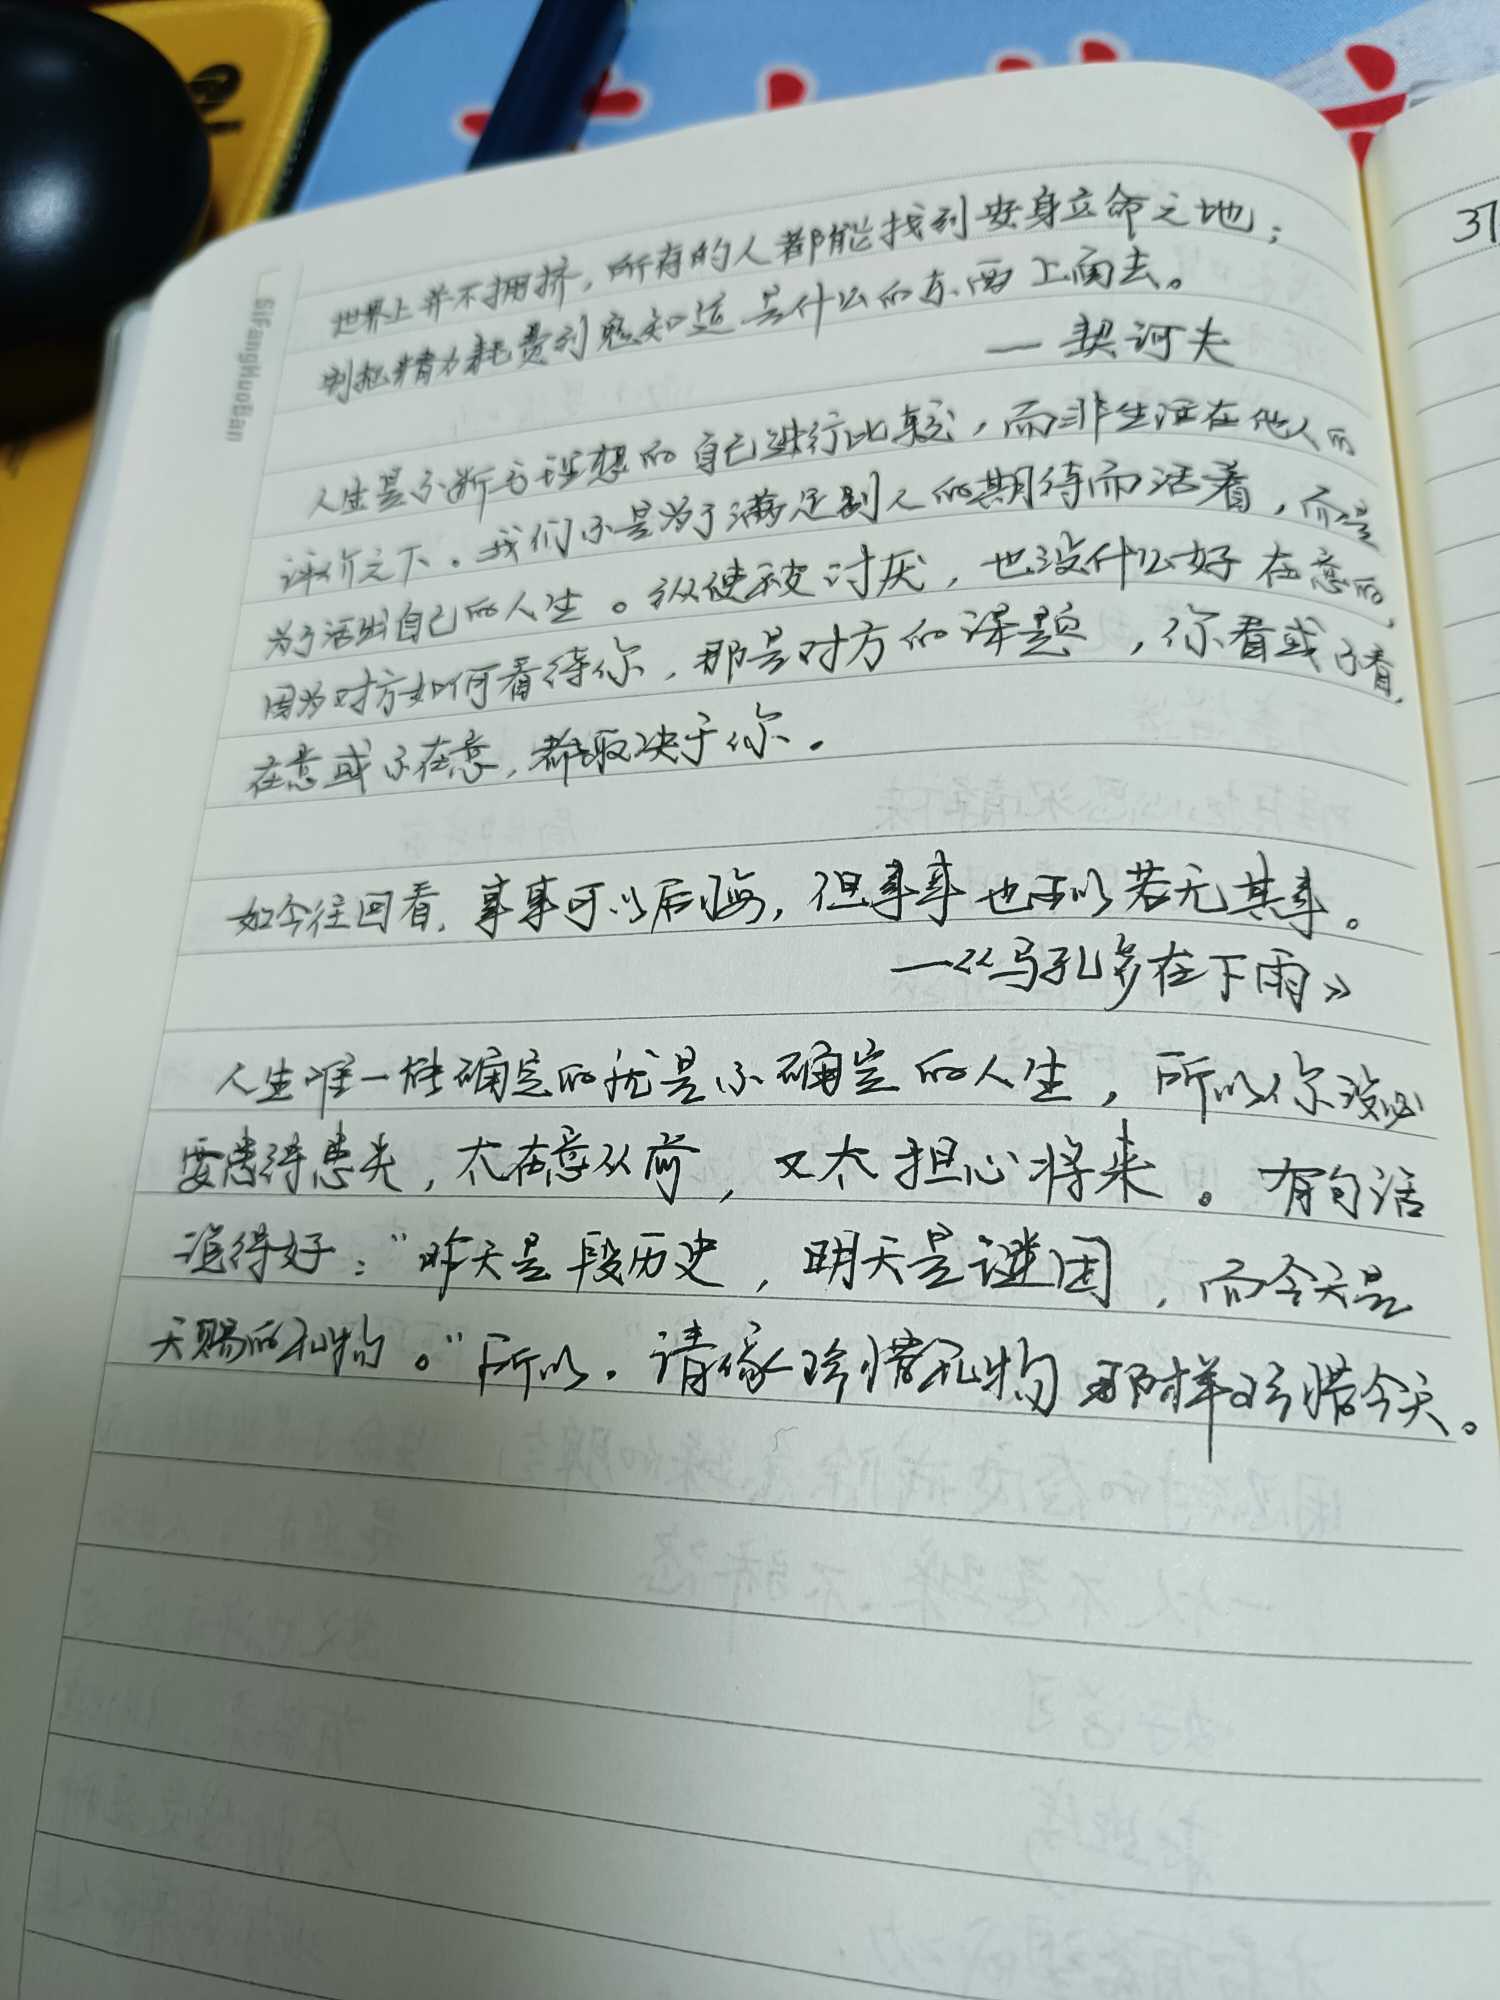 SiFangHuoBan
37
世界上并不拥挤，所有的人都能找到安身立命之地；
别把精力耗费到鬼知道是什么的东西上面去。
—契诃夫
人生是不断与理想的自己进行比较，而非生活在他人的
评价之下。我们不是为了满足别人的期待而活着，而是
为了活出自己的人生。纵使被讨厌，也没什么好在意的，
因为对方如何看待你，那是对方的课题，你看或不看，
在意或不在意，都取决于你。
如今往回看，事事可以后悔，但事事也可以若无其事。
—《马孔多在下雨》
人生唯一能确定的就是不确定的人生，所以你没必
要患得患失，太在意从前，又太担心将来。有句话
说得好：“昨天是段历史，明天是谜团，而今天是
天赐的礼物。”所以，请像珍惜礼物那样珍惜今天。